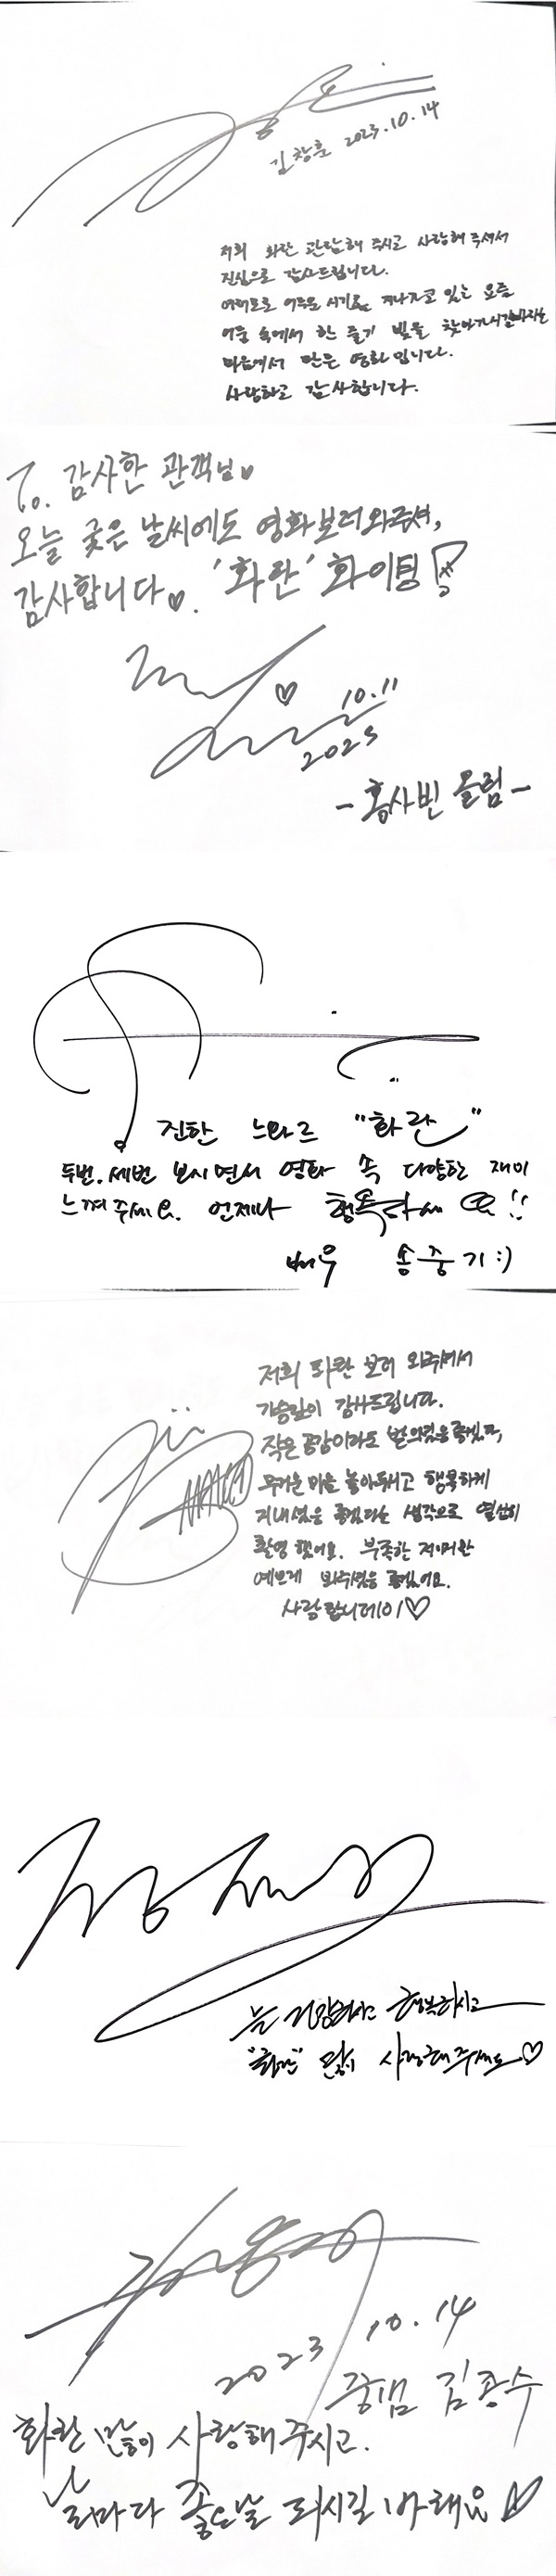 김창훈 2023.10.14
저희 화란 관람해 주시고 사랑해 주셔서
진심으로 감사드립니다.
여러모로 어두운 시기를 지나가고 있는 요즘
어둠 속에서 한 줄기 빛을
마음에서 만든 영화입니다.
사랑하고 감사합니다.
To. 감사한 관객님♥
오늘 궂은 날씨에도 영화보러와주셔,
감사합니다♥. '화란' 화이팅!
♡ 10.11
2023
-홍사빈 올림-
진한 느와르 "화란"
두번, 세번 보시면서 영화 속 다양한 재미
느껴주세요. 언제나 행복하세요!!
배우 송중기:)
저희 화란 보러 와주셔서
가슴깊이 감사드립니다.
작은 공감이라도 받으셨음 좋겠고,
무거운 마음 놓아두시고 행복하게
지내셨음 좋겠다는 생각으로 열심히
촬영 했어요. 부족한 저희지만
예쁘게 봐주셨음 좋겠어요.
사랑합니데이♡
늘 건강하시고 행복하시고
"화란" 많이 사랑해주세요♡
2023 10.14
중범 김종수
화란 많이 사랑해 주시고.
날마다 좋은날 되시길 바래요♡